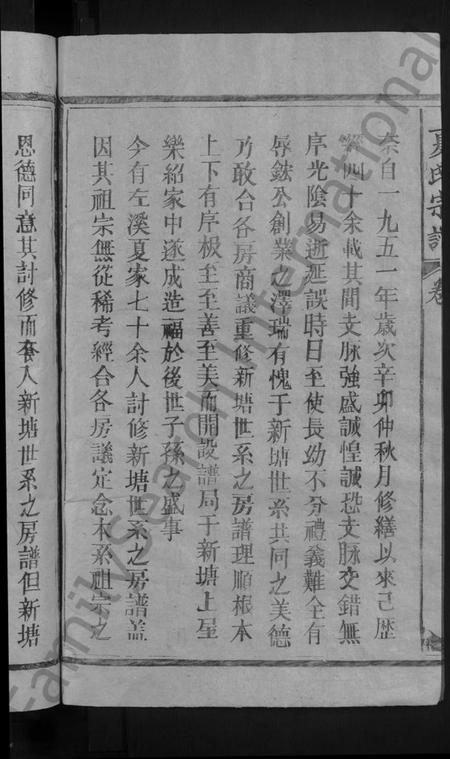 夏氏宗譜 卷
奈自一九五一年歲次辛卯仲秋月修繕以來己歷
四十余載其間支脉強盛誠惶誠恐支脉交錯無
序光陰易逝延誤時日至使長幼不分禮義難全有
辱鋐公創業之澤瑞有愧于新塘世系共同之美德
乃敢台各房商議重修新塘世系之房譜理順根本
上下有序极至至善至美而開設譜局于新塘上屋
樂紹家中遂成造福於後世子孫之盛事
今有左溪夏家七十余人討修新塘世系之房譜盖
因其祖宗無從稀考經合各房議定念木系祖宗之
恩德同意其討修而奎入新塘世系之房譜但新塘
FamilySearch International